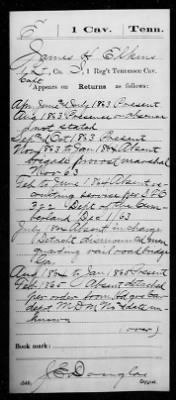 E | 1 Cav. | Tenn.
James H Elkins
Co. 1 Reg't Tennessee Cav.
Capt
Appears on Returns as follows:
Apr June & July 1863 Present
Aug 1863 Presence or absence
not stated
Sept & Oct 1863 Present
Nov 1863 to Jan 1864 Absent
brigade provost marshal
Nov 63
Feb to June 1864 Absent re-
cruiting service per S.F.O.
Dept of the Cum-
berland Dec 11/63
July 1864 Absent in charge
Detroit dismounted men
guarding railroad bridge
Aug 1864 to Jan 1865 Present
Feb 1865 Absent detached
per order from
dept
(over)
Book mark:
J E Douglas
Copyist.